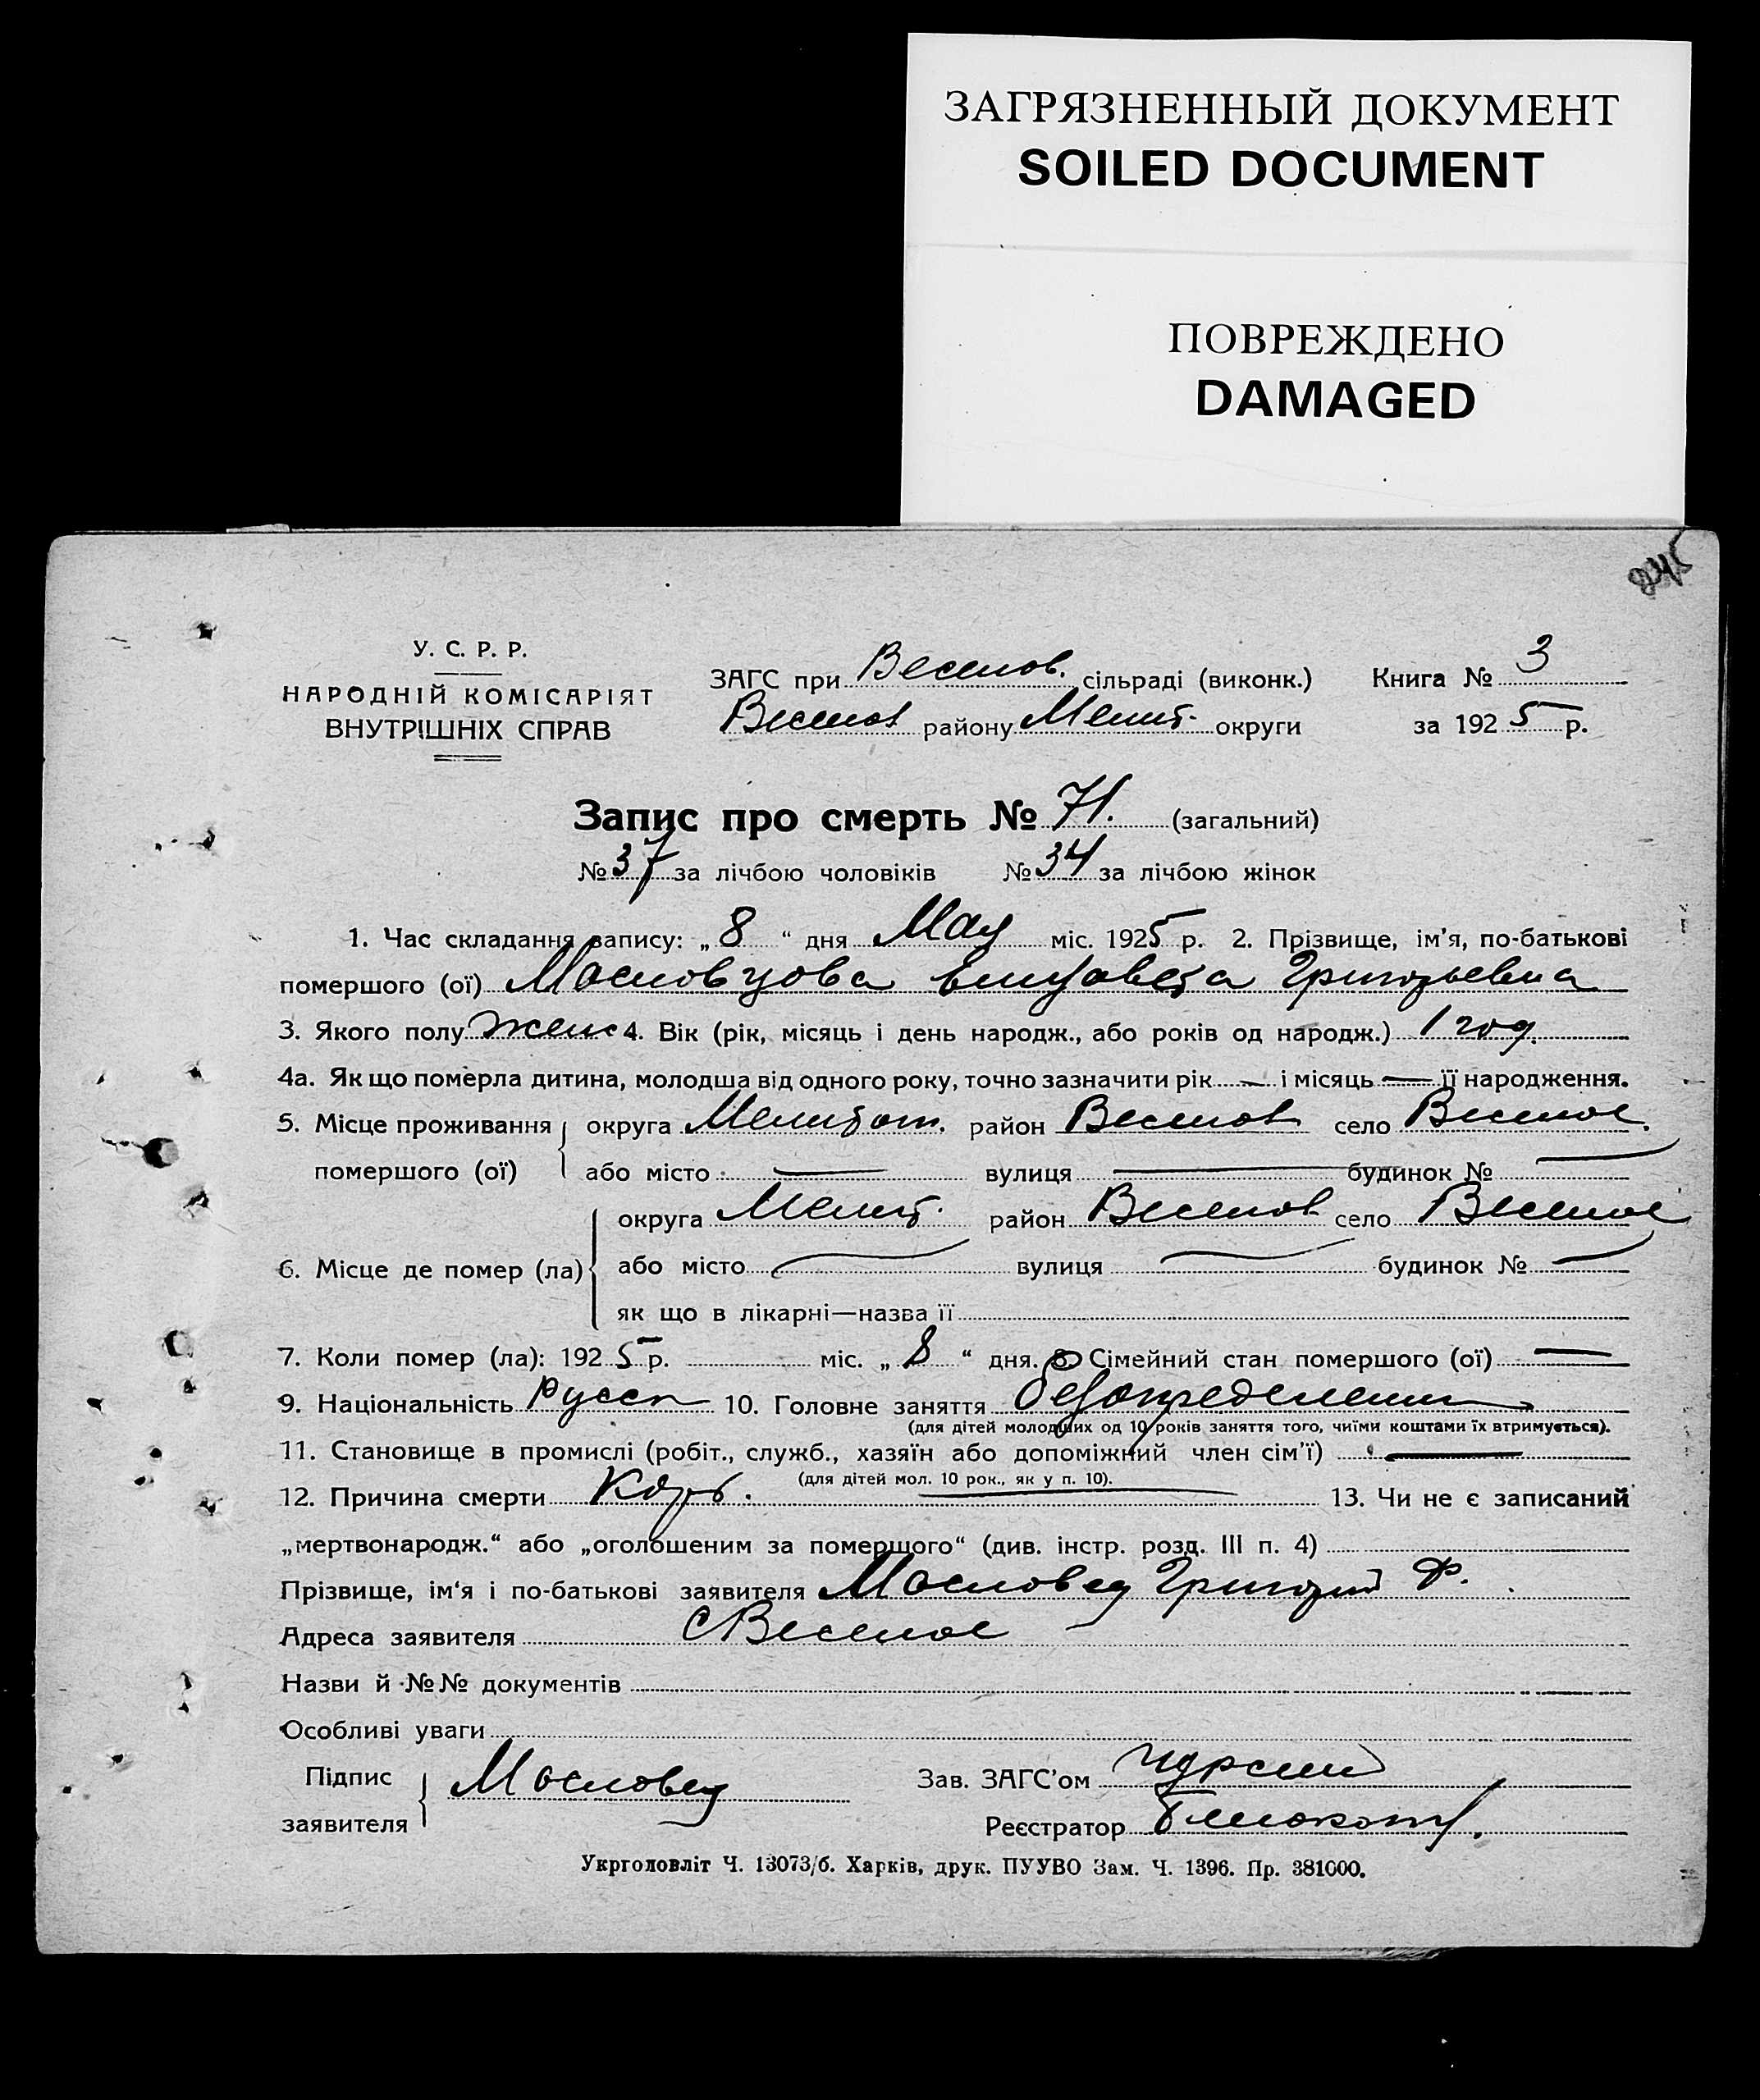 ЗАГРЯЗНЕННЫЙ ДОКУМЕНТ
SOILED DOCUMENT
ПОВРЕЖДЕНО
DAMAGED
245
У. С. Р. Р.
НАРОДНІЙ КОМІСАРІЯТ
ВНУТРІШНІХ СПРАВ
ЗАГС при Веселов. сільраді (виконк.) Книга № 3
Веселов району Мелит. округи за 1925 р.
Запис про смерть № 71. (загальний)
№ 37 за лічбою чоловіків № 34 за лічбою жінок
1. Час складання запису: „ 8 “ дня Мая міс. 1925 р. 2. Прізвище, ім’я, по-батькові
помершого (ої) Масловцова Елизавета Григорьевна
3. Якого полу женс 4. Вік (рік, місяць і день народж., або років од народж.) 1 год.
4а. Як що померла дитина, молодша від одного року, точно зазначити рік — і місяць — її народження.
5. Місце проживання округа Мелитоп. район Веселов село Веселое.
помершого (ої) або місто — вулиця — будинок № —
округа Мелит. район Веселов село Веселое
6. Місце де помер (ла) або місто — вулиця — будинок № —
як що в лікарні—назва її
7. Коли помер (ла): 1925 р. міс. „ 8 “ дня. 8. Сімейний стан помершого (ої) —
9. Національність Русск 10. Головне заняття
(для дітей молодших од 10 років заняття того, чиїми коштами їх втримується).
11. Становище в промислі (робіт., служб., хазяїн або допоміжний член сім’ї) —
(для дітей мол. 10 рок., як у п. 10).
12. Причина смерти Корь. — 13. Чи не є записаний
„мертвонародж.“ або „оголошеним за помершого“ (див. інстр. розд. III п. 4)
Прізвище, ім‘я і по-батькові заявителя Масловец Григорий Ф.
Адреса заявителя с Веселое
Назви й №№ документів
Особливі уваги
Підпис заявителя Масловец
Зав. ЗАГС’ом
Реєстратор
Укрголовліт Ч. 13073/б. Харків, друк. ПУУВО Зам. Ч. 1396. Пр. 381000.